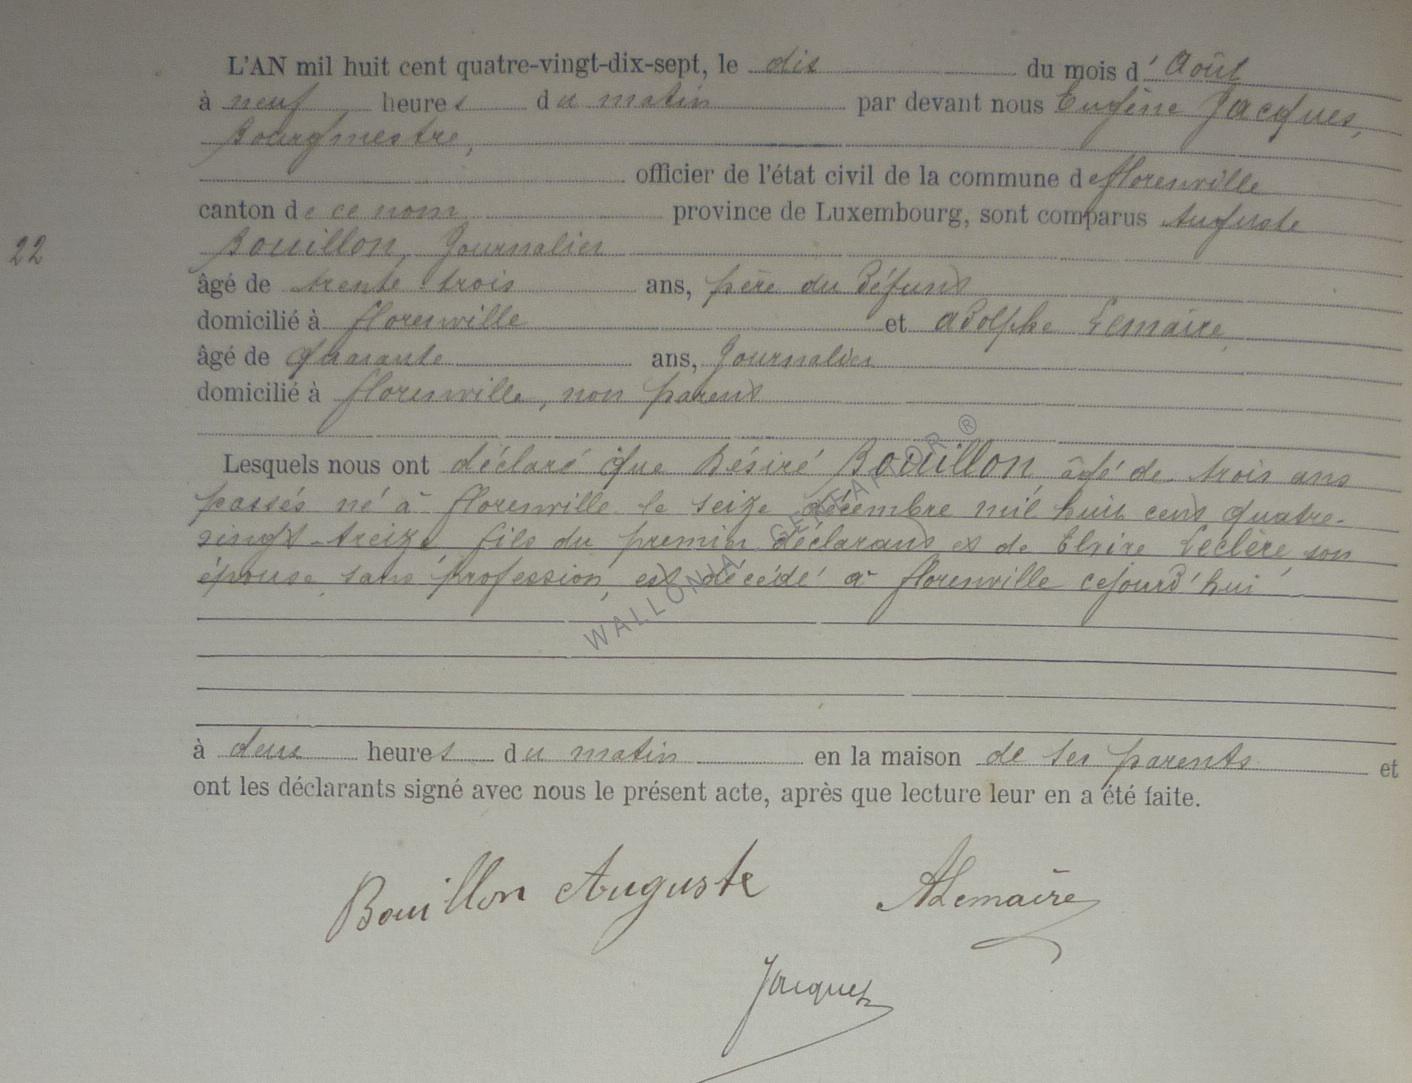 L'AN mil huit cent quatre-vingt-dix-sept, le dix du mois d'Août
à neuf heures du matin par devant nous Eugène Jacques,
Bourgmestre,
officier de l'état civil de la commune de florenville
canton de ce nom province de Luxembourg, sont comparus Auguste
22
Bouillon, Journalier
âgé de trente trois ans, père du défunt
domicilié à florenville et Adolphe Lemaire,
âgé de quarante ans, Journalier
domicilié à florenville, non parent
Lesquels nous ont déclaré que Désiré Bouillon, âgé de trois ans
passés né à florenville le seize décembre mil huit cent quatre-
vingt-treize, fils du premier déclarant et de Elvire Leclère, son
épouse, sans profession, est décédé à florenville cejourd'hui
à deux heures du matin en la maison de ses parents et
ont les déclarants signé avec nous le présent acte, après que lecture leur en a été faite.
Bouillon Auguste ALemaire
Jacques
WALLONIA GENFAHDR ®